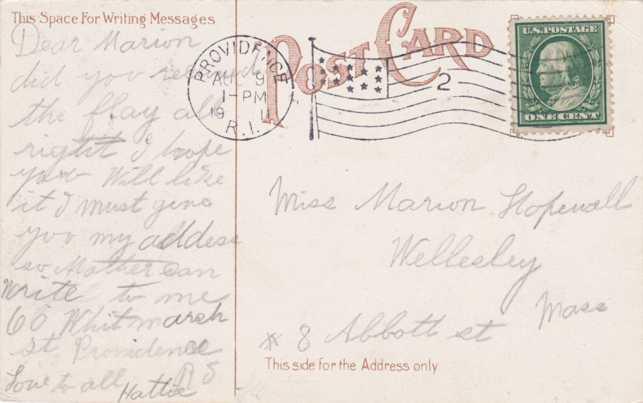 This Space For Writing Messages
POST CARD
PROVIDENCE
AUG 9
1-PM
1911
R.I.
2
U.S. POSTAGE
ONE CENT
Dear Marion
did you received
the flag all
right I hope
you Will like
it I must give
you my addess
so Mother can
write to me
60 Whitmarsh
st Providence
R I
Love to all Hattie
Miss Marion Hopewall
Wellesley
Mass
# 8 Abbott st
This side for the Address only